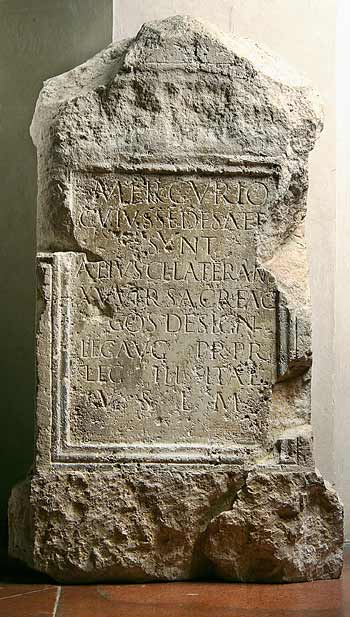 MERCVRIO
CVIVS SEDES A TE
SVNT
APPIVS CL LATERAN
XV VIR SACR FAC
COS DESIGN
LEG AVG PR PR
LEG III ITAL
V S L M